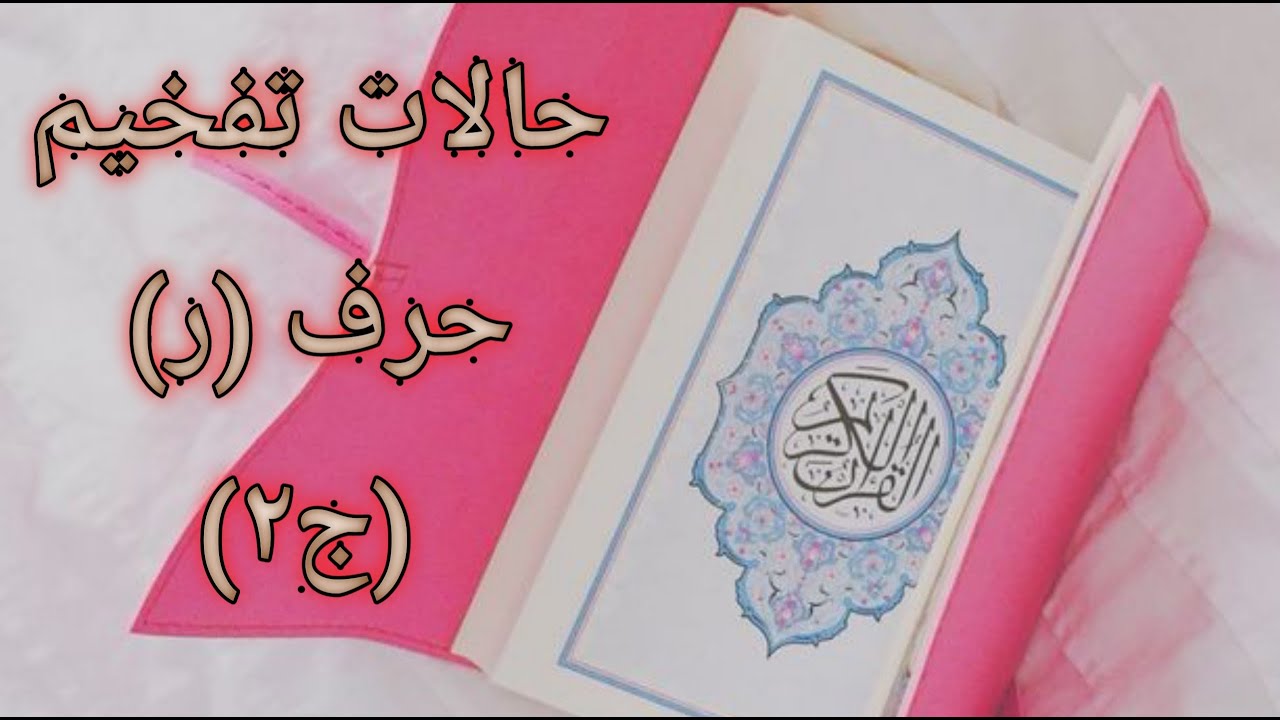 حالات تفخيم
حرف (ر)
(ج٢)
القرآن الكريم